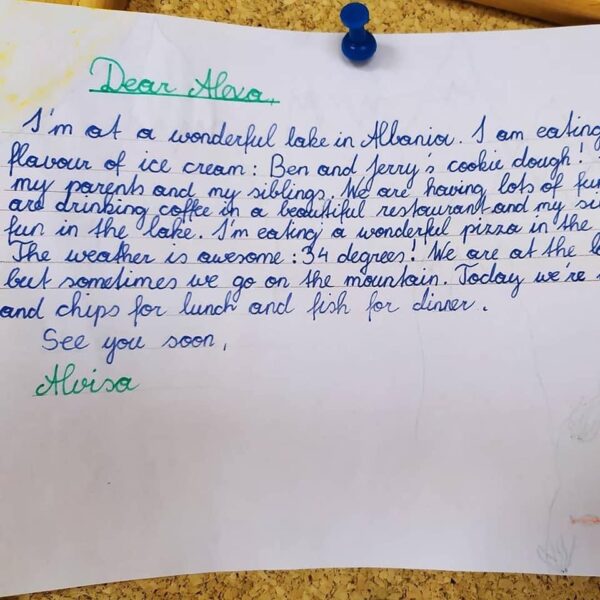 Dear Alexa,
I'm at a wonderful lake in Albania. I am eating
flavour of ice cream: Ben and Jerry's cookie dough!
my parents and my siblings. We are having lots of fun
are drinking coffee in a beautiful restaurant and my si
fun in the lake. I'm eating a wonderful pizza in the
The weather is awesome: 34 degrees! We are at the la
but sometimes we go on the mountain. Today we're
and chips for lunch and fish for dinner.
See you soon,
Alvisa